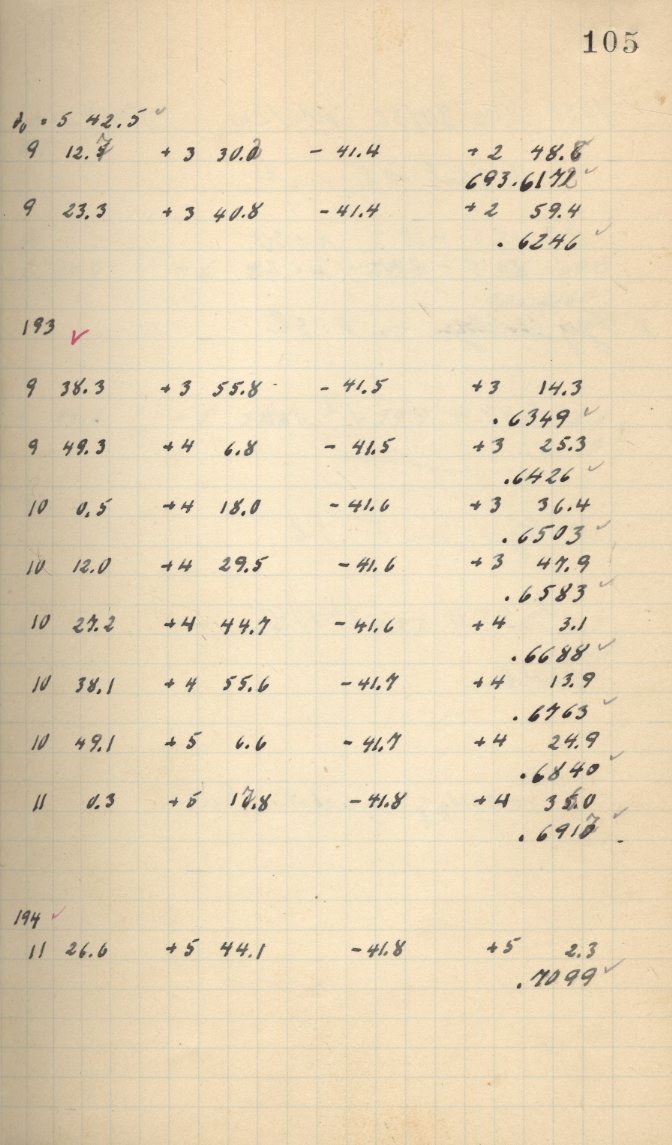 105
= 5 42.5 ✓
9 12.7 + 3 30.2 - 41.4 + 2 48.8
693.6172 ✓
9 23.3 + 3 40.8 - 41.4 + 2 59.4
.6246 ✓
193 ✓
9 38.3 + 3 55.8 - 41.5 + 3 14.3
.6349 ✓
9 49.3 + 4 6.8 - 41.5 + 3 25.3
.6426 ✓
10 0.5 + 4 18.0 - 41.6 + 3 36.4
.6503 ✓
10 12.0 + 4 29.5 - 41.6 + 3 47.9
.6583 ✓
10 27.2 + 4 44.7 - 41.6 + 4 3.1
.6688 ✓
10 38.1 + 4 55.6 - 41.7 + 4 13.9
.6763 ✓
10 49.1 + 5 6.6 - 41.7 + 4 24.9
.6840 ✓
11 0.3 + 5 17.8 - 41.8 + 4 36.0
.6917 ✓
194 ✓
11 26.6 + 5 44.1 - 41.8 + 5 2.3
.7099 ✓